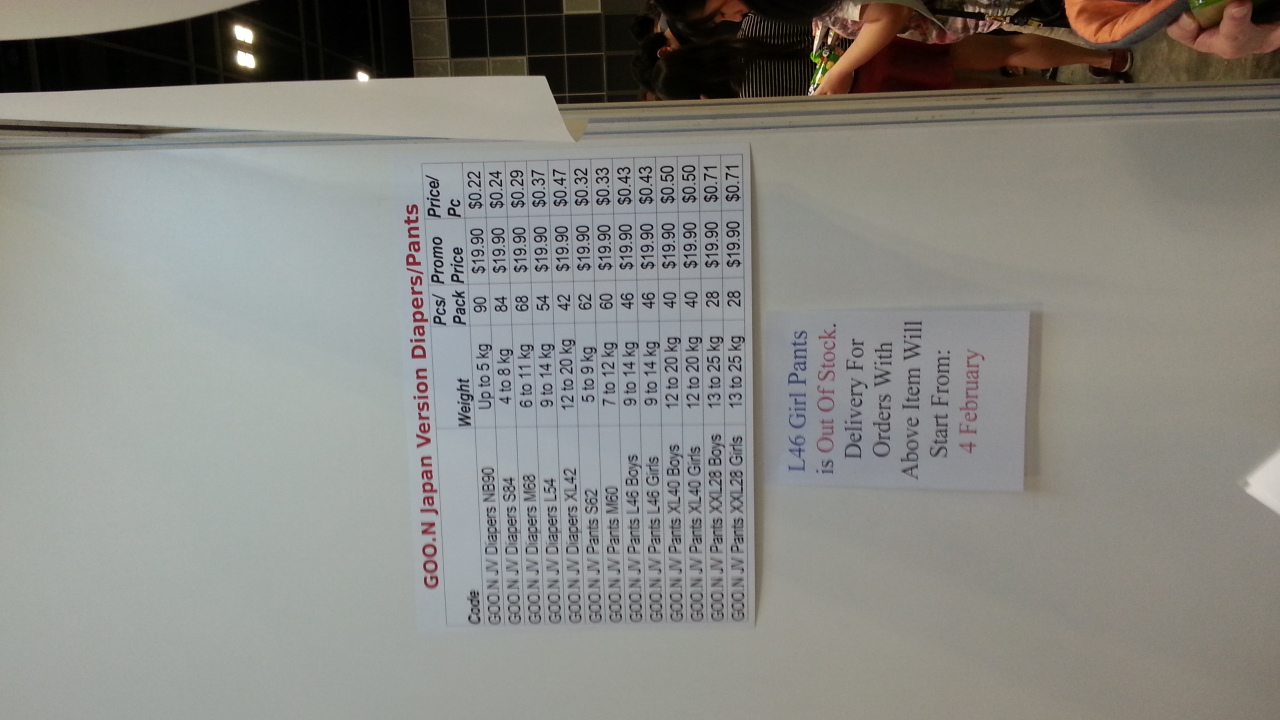 GOO.N Japan Version Diapers/Pants
Code Weight Pcs/ Pack Promo Price Price/ Pc
GOO.N JV Diapers NB90 Up to 5 kg 90 $19.90 $0.22
GOO.N JV Diapers S84 4 to 8 kg 84 $19.90 $0.24
GOO.N JV Diapers M68 6 to 11 kg 68 $19.90 $0.29
GOO.N JV Diapers L54 9 to 14 kg 54 $19.90 $0.37
GOO.N JV Diapers XL42 12 to 20 kg 42 $19.90 $0.47
GOO.N JV Pants S62 5 to 9 kg 62 $19.90 $0.32
GOO.N JV Pants M60 7 to 12 kg 60 $19.90 $0.33
GOO.N JV Pants L46 Boys 9 to 14 kg 46 $19.90 $0.43
GOO.N JV Pants L46 Girls 9 to 14 kg 46 $19.90 $0.43
GOO.N JV Pants XL40 Boys 12 to 20 kg 40 $19.90 $0.50
GOO.N JV Pants XL40 Girls 12 to 20 kg 40 $19.90 $0.50
GOO.N JV Pants XXL28 Boys 13 to 25 kg 28 $19.90 $0.71
GOO.N JV Pants XXL28 Girls 13 to 25 kg 28 $19.90 $0.71
L46 Girl Pants
is Out Of Stock.
Delivery For
Orders With
Above Item Will
Start From:
4 February